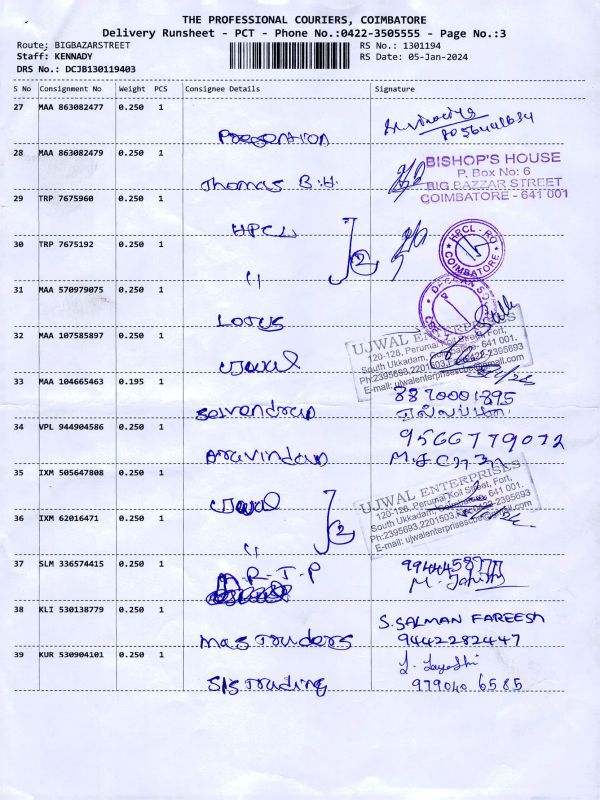 THE PROFESSIONAL COURIERS, COIMBATORE
Delivery Runsheet - PCT - Phone No.:0422-3505555 - Page No.:3
Route: BIGBAZARSTREET
Staff: KENNADY
DRS No.: DCJB130119403
RS No.: 1301194
RS Date: 05-Jan-2024
S No Consignment No Weight PCS Consignee Details Signature
27 MAA 863082477 0.250 1
28 MAA 863082479 0.250 1
Thomas B.H.
BISHOP'S HOUSE
P. Box No: 6
BIG BAZZAR STREET
COIMBATORE - 641 001
29 TRP 7675960 0.250 1
HPCL
30 TRP 7675192 0.250 1
"
2
HPCL - RO
COIMBATORE
31 MAA 570979075 0.250 1
Lotus
32 MAA 107585897 0.250 1
Ujwal
UJWAL ENTERPRISES
120-128, Perumal Koil Street, Fort,
South Ukkadam, Coimbatore - 641 001.
Ph:2395693,2201503,Fax:0422-2395693
E-mail: ujwalenterprisescbe@gmail.com
33 MAA 104665463 0.195 1
8870001895
34 VPL 944904586 0.250 1
Aravindan
9566779072
35 IXM 505647808 0.250 1
Ujwal
36 IXM 62016471 0.250 1
"
2
UJWAL ENTERPRISES
120-128, Perumal Koil Street, Fort,
South Ukkadam, Coimbatore - 641 001.
Ph:2395693,2201503,Fax:0422-2395693
E-mail: ujwalenterprisescbe@gmail.com
37 SLM 336574415 0.250 1
38 KLI 530138779 0.250 1
Mas Traders
S.SALMAN FAREESH
9442282447
39 KUR 530904101 0.250 1
SIS Trading
979040 6585